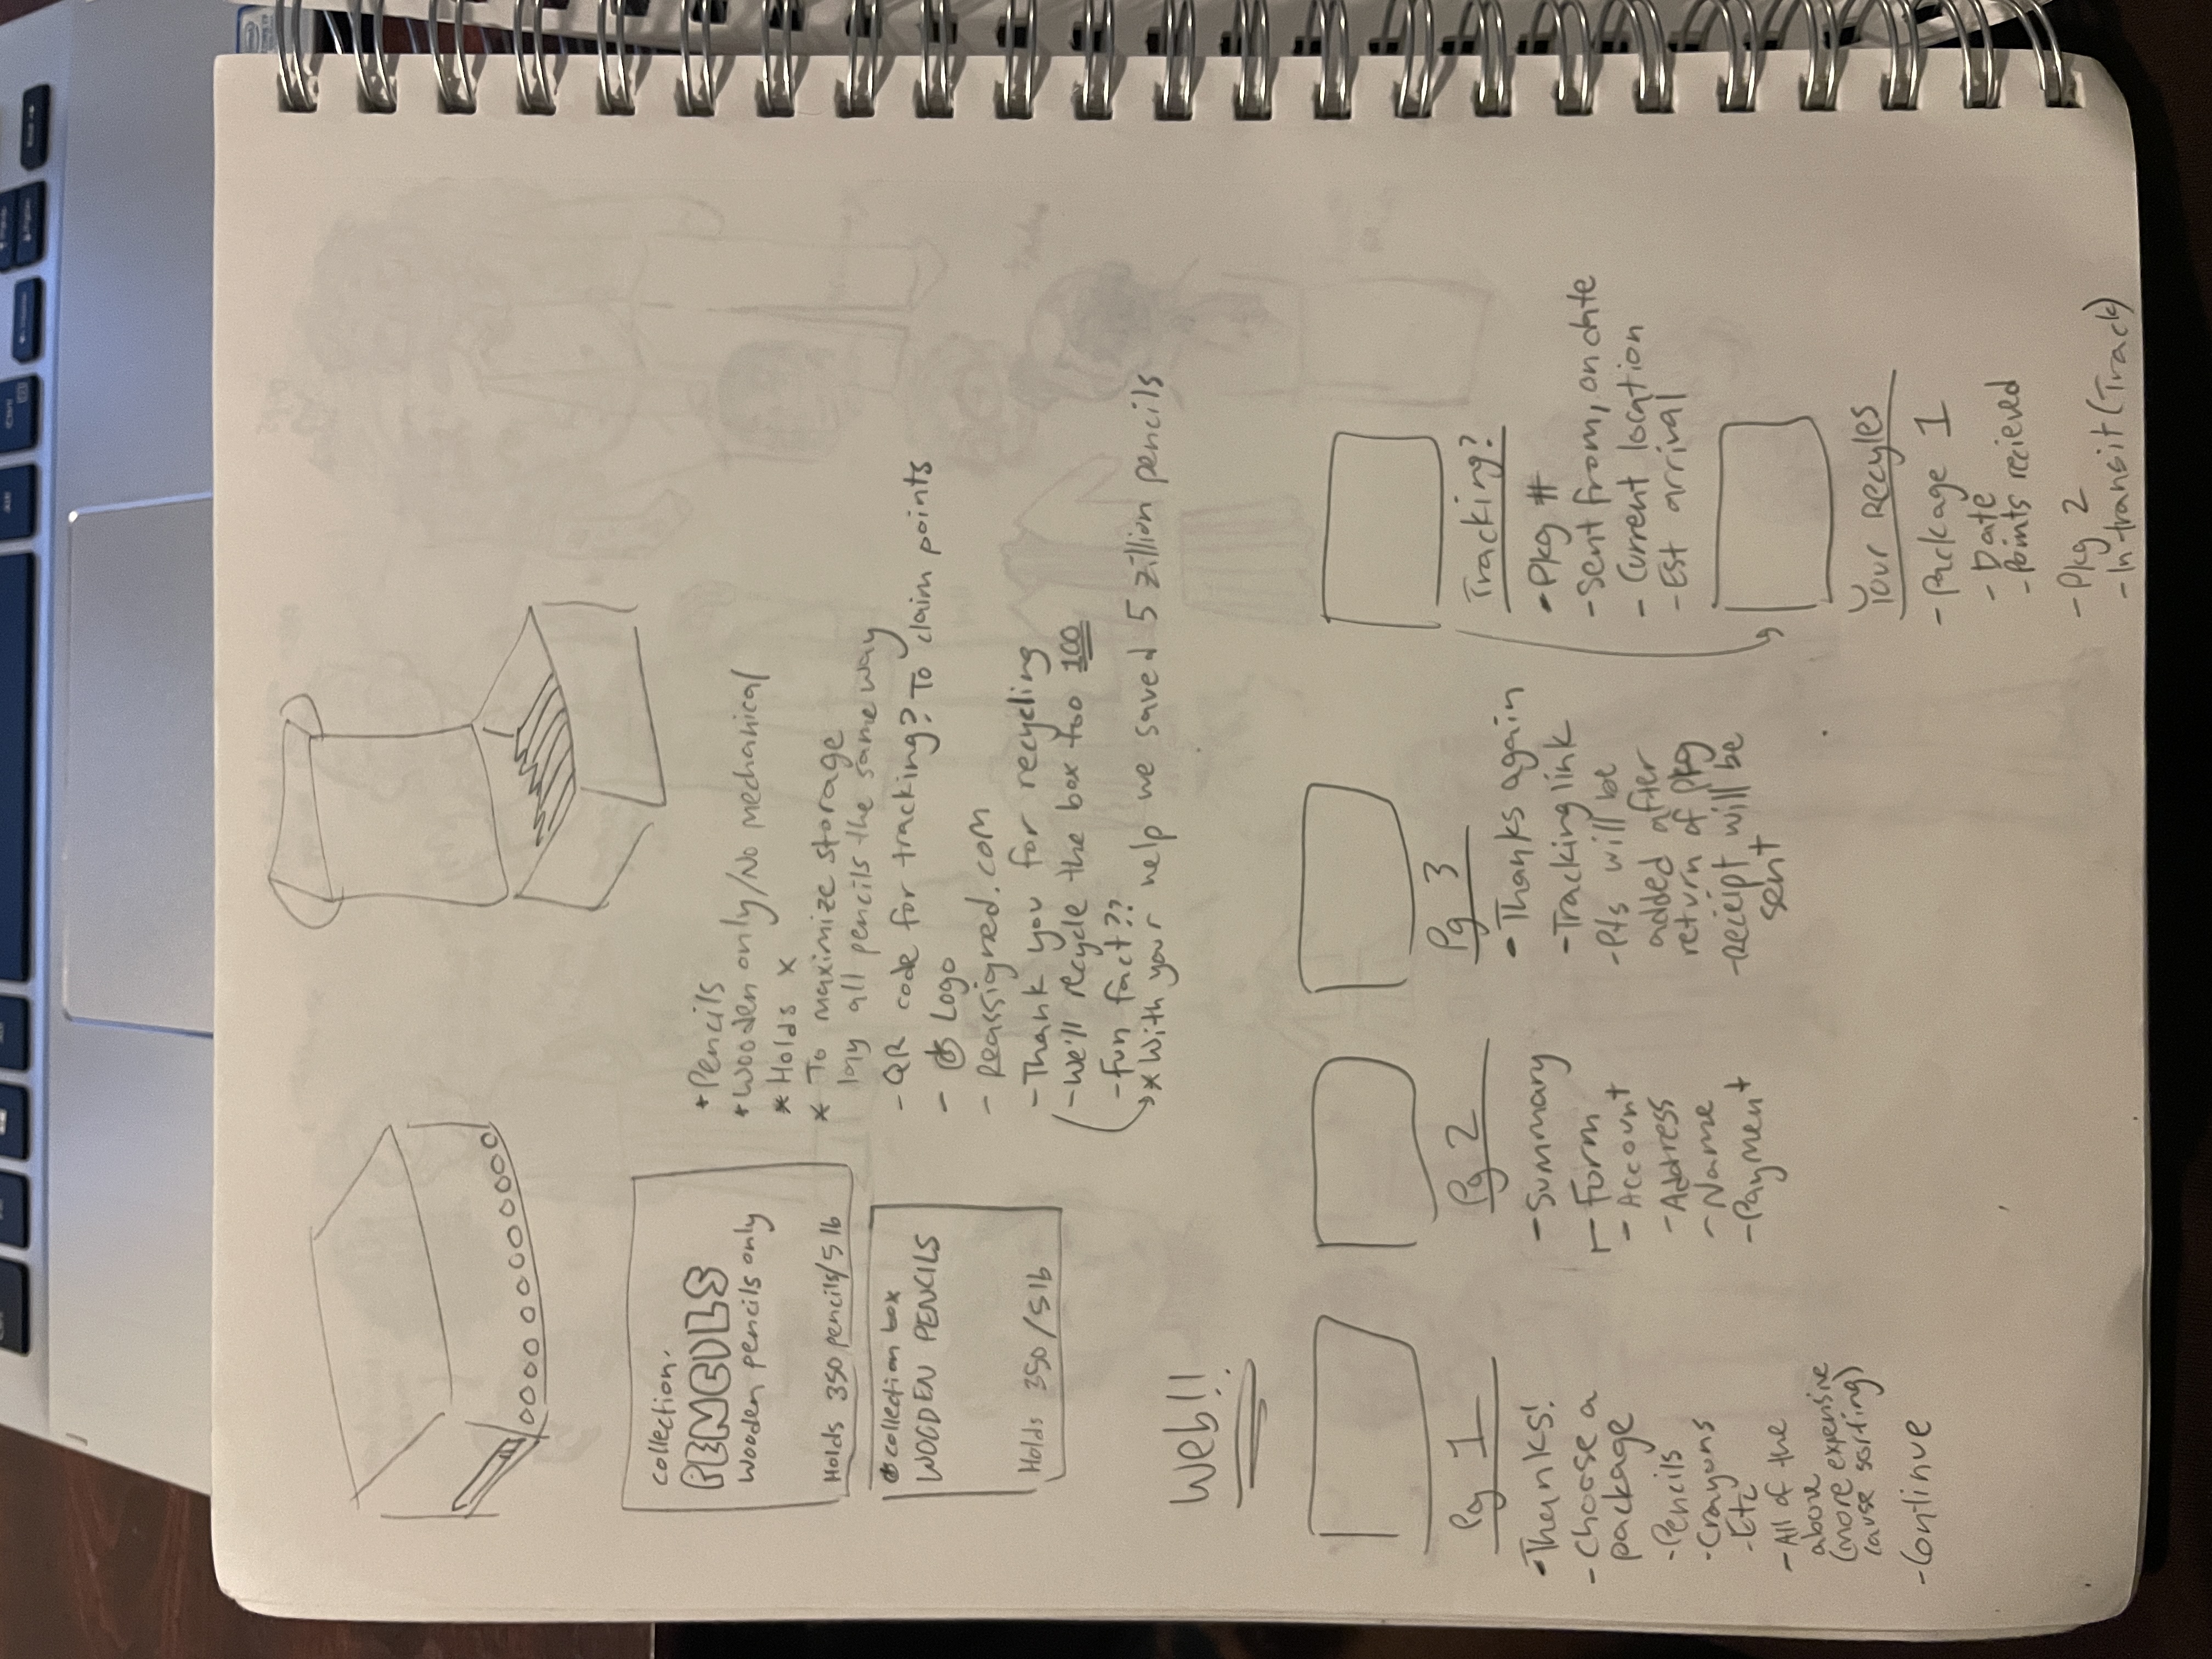 collection.
PENCILS
Wooden pencils only
Holds 350 pencils/5 lb
collection box
WOODEN PENCILS
Holds 350/5lb
* Pencils
* Wooden only/No mechanical
* Holds x
* To maximize storage
lay all pencils the same way
- QR code for tracking? To claim points
- Logo
- Reassigned.com
- Thank you for recycling
- We'll recycle the box too 100
- fun fact??
* With your help we saved 5 zillion pencils
Web!!
Pg 1
- Thanks!
- Choose a
package
- Pencils
- Crayons
- Etc
- All of the
above
(more expensive
cause sorting)
- Continue
Pg 2
- Summary
- Form
- Account
- Address
- Name
- Payment
Pg 3
- Thanks again
- Tracking link
- Pts will be
added after
return of pkg
- Receipt will be
sent
Tracking?
- Pkg #
- Sent from, on date
- Current location
- Est arrival
Your Recyles
- Package 1
- Date
- Points recieved
- Pkg 2
- In transit (Track)